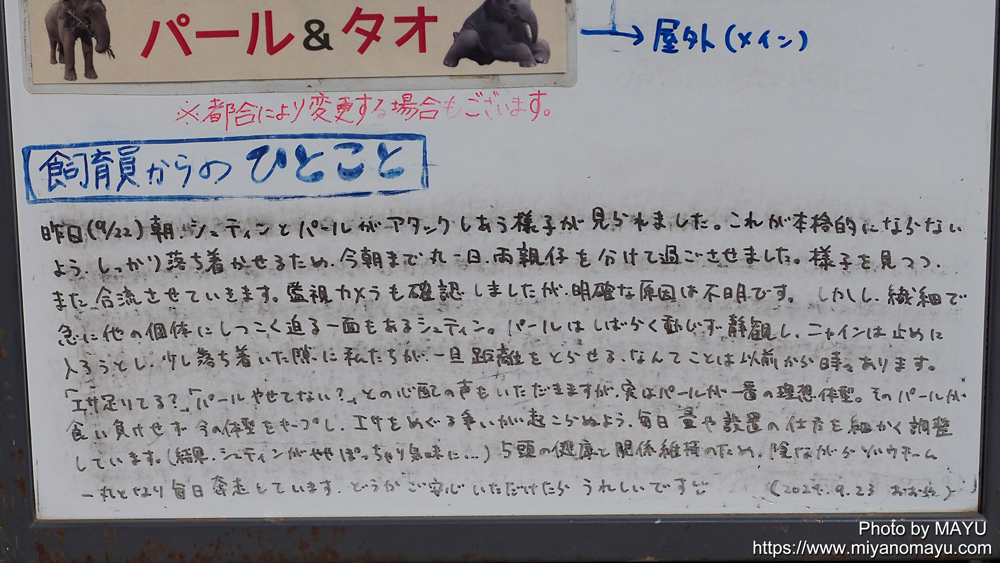 パール&タオ
→屋外(メイン)
※都合により変更する場合もございます。
飼育員からのひとこと
昨日(9/22)朝、シュティンとパールがアタックしあう様子が見られました。これが本格的にならない
よう、しっかり落ち着かせるため、今朝まで丸一日、両親仔を分けて過ごさせました。様子を見つつ、
また合流させていきます。監視カメラも確認しましたが、明確な原因は不明です。しかし、繊細で
急に他の個体にしつこく迫る一面もあるシュティン。パールはしばらく動じず静観し、ニャインは止めに
入ろうとし、少し落ち着いた隙に私たちが、一旦距離をとらせる、なんてことは以前から時々あります。
「エサ足りてる?」「パールやせてない?」との心配の声もいただきますが、実はパールが一番の理想体型。そのパールが
食い負けせず、その体型をキープし、エサをめぐる争いが起こらぬよう、毎日量や設置の仕方を細かく調整
しています。(結果、シュティンがややぽっちゃり気味に…) 5頭の健康と関係維持のため、陰ながらゾウチーム
一丸となり毎日奔走しています。どうかご安心いただけたらうれしいです (2024.9.23
Photo by MAYU
https://www.miyanomayu.com